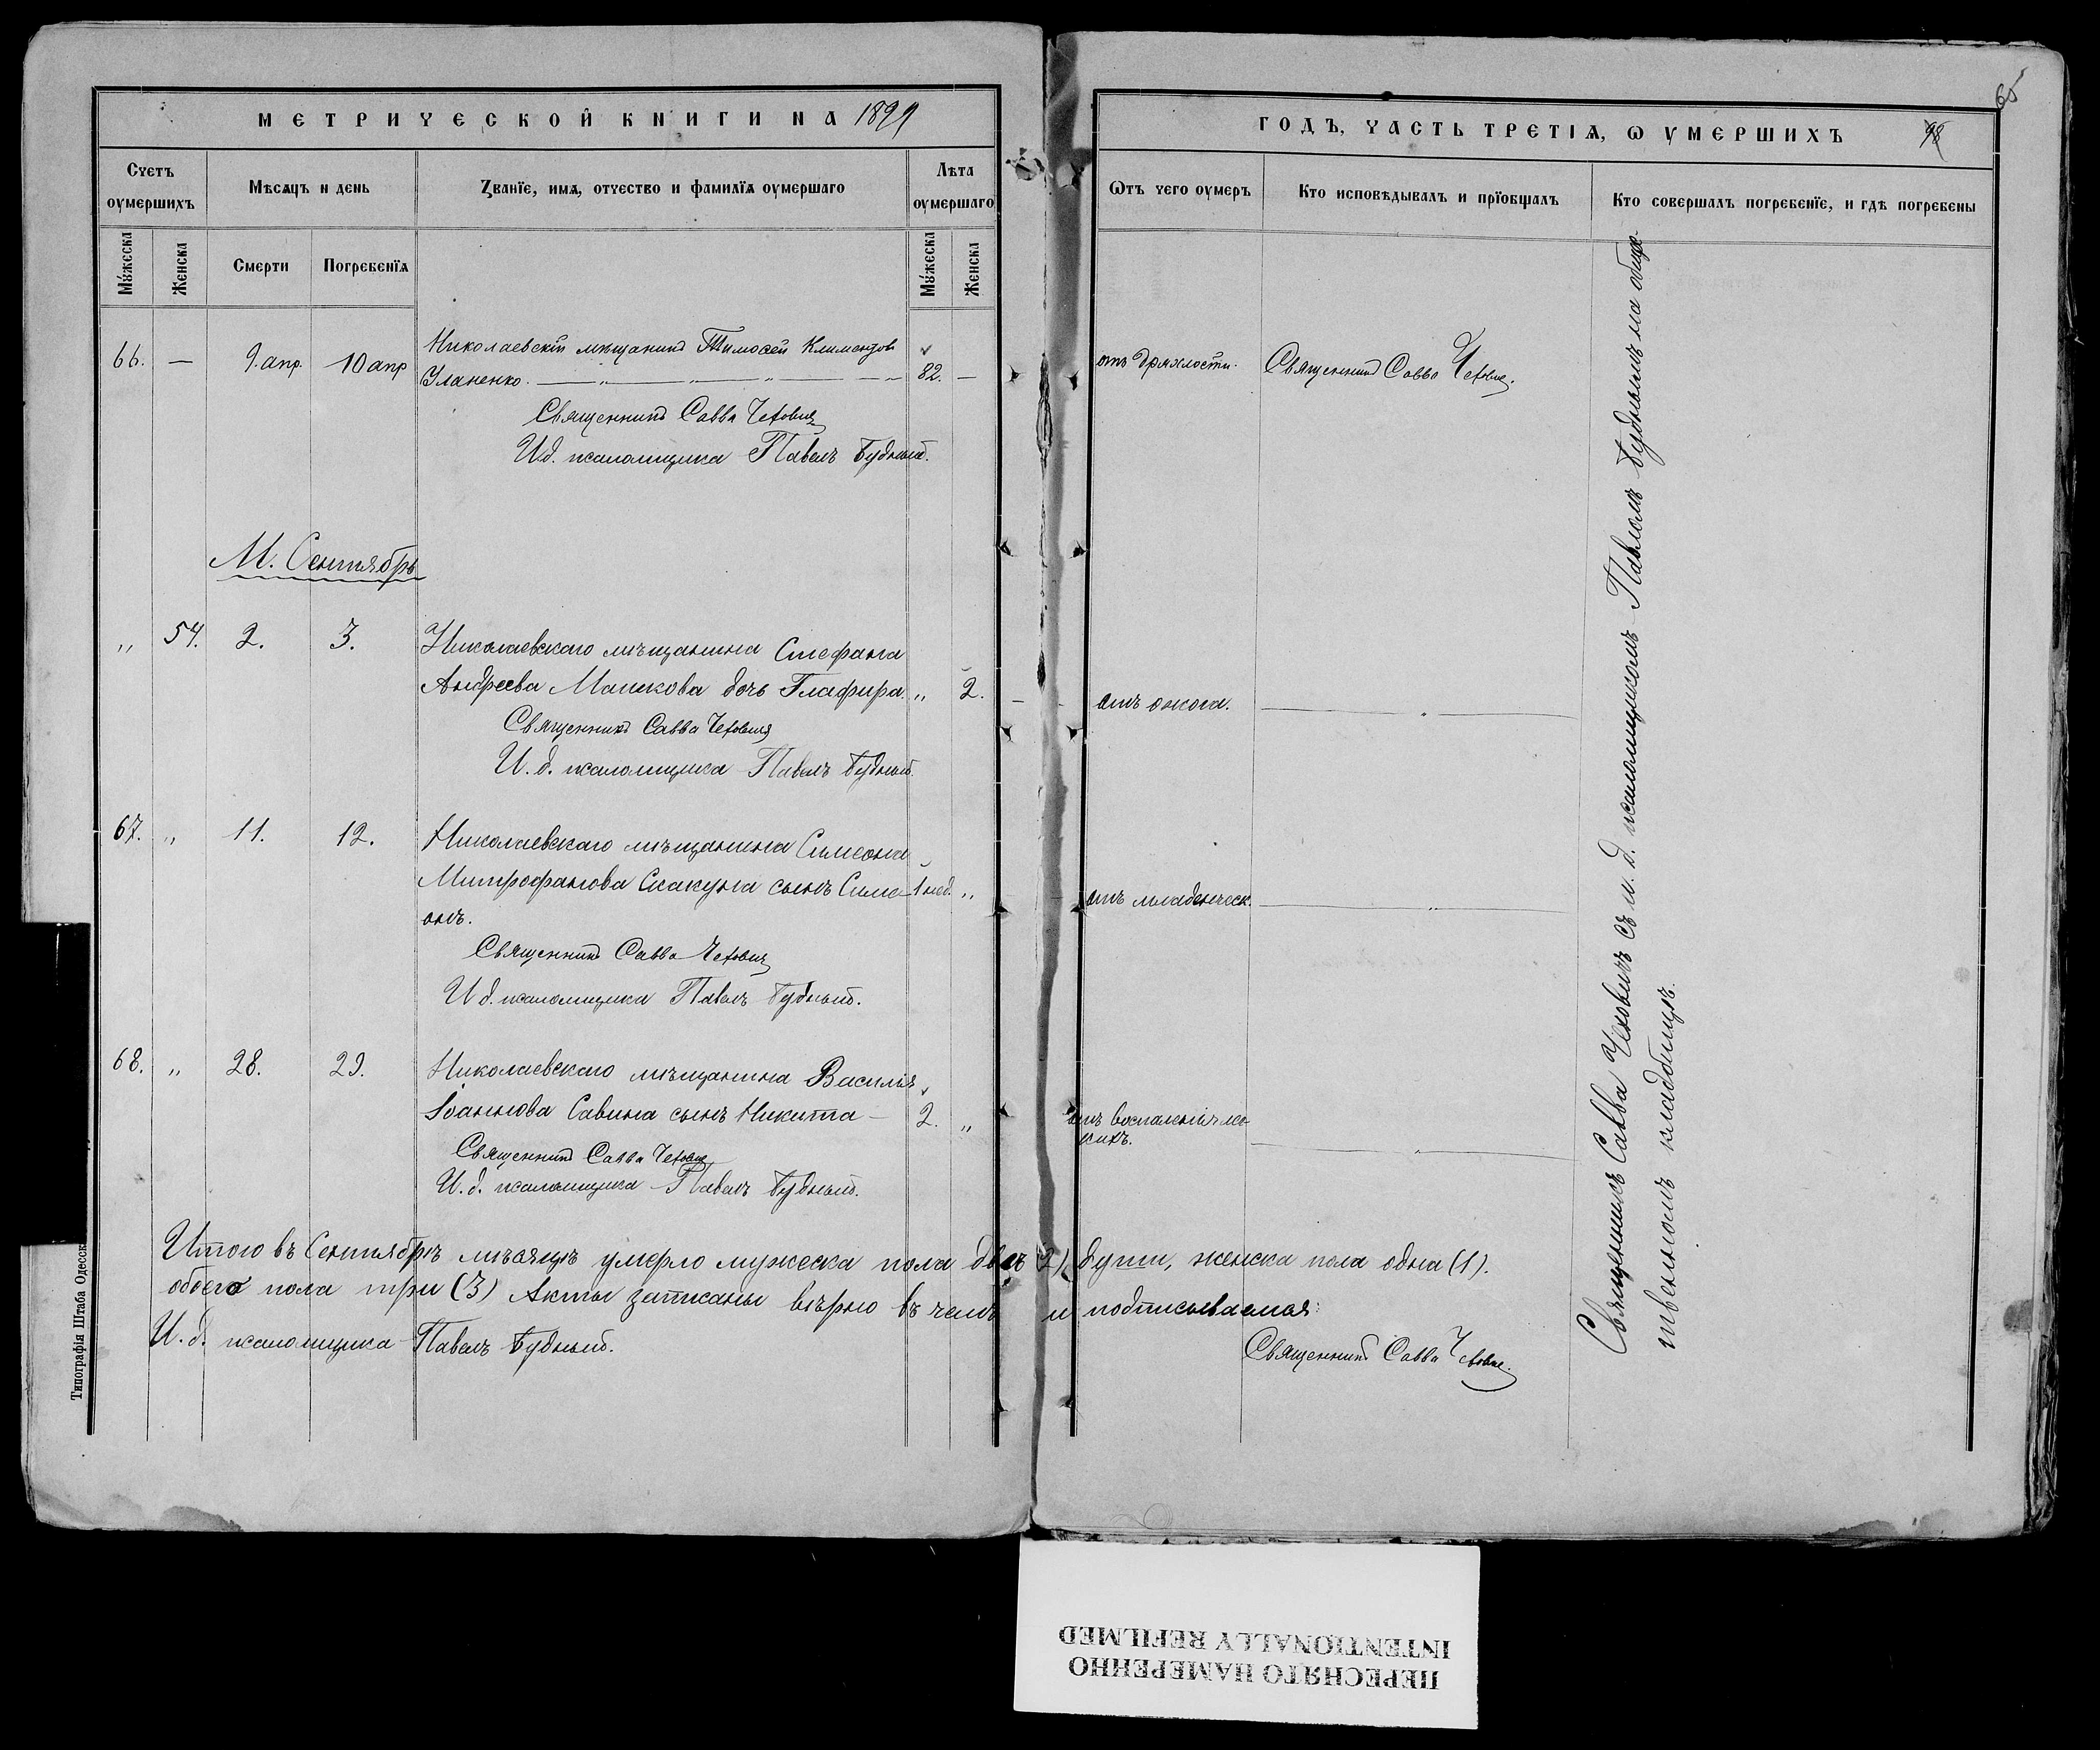 МЕТРИЧЕСКОЙ КНИГИ НА 1899
Счетъ оумершихъ
Мѣсяцъ и день
Званїе, имя, отчество и фамилїя оумершаго
Лѣта оумершаго
Мужеска
Женска
Смерти
Погребенїя
Мужеска
Женска
66. — 9. апр. 10 апр Николаевскій мѣщанинъ Тимоѳей Климентов
Уланенко. — 82. —
Священникъ Савва Чехович
И д. псаломщика Павелъ Будный.
М. Сентябрь
„ 54. 2. 3. Николаевскаго мѣщанина Стефана
Андреева дочь Глафира. „ 2.
Священникъ Савва Чехович
И. д. псаломщика Павелъ Будный.
67. „ 11. 12. Николаевскаго мѣщанина Симеона
Митрофанова Скакуна сынъ Симе- 1 нед. „
онъ.
Священникъ Савва Чехович
И д. псаломщика Павелъ Будный.
68. „ 28. 29. Николаевскаго мѣщанина Василія
Іоаннова Савина сынъ Никита — 2. „
Священникъ Савва Чехович
И. д. псаломщика Павелъ Будный.
Итого въ Сентябрѣ мѣсяцѣ умерло мужеска пола двѣ (2)
обоего пола три (3) Акты записаны вѣрно въ чемъ
И. д. псаломщика Павелъ Будный.
Типографія Штаба Одесск
65
ГОДЪ, ЧАСТЬ ТРЕТІЯ, Ѡ УМЕРШИХЪ 98
Ѿтъ чего оумеръ
Кто исповѣдывалъ и прїобщалъ
Кто совершалъ погребенїе, и гдѣ погребены
отъ дряхлости. Священникъ Савва Чехович.
отъ ожога. — „ —
отъ младенческ. — „ —
отъ воспаленія ле-
кихъ. — „ —
Священникъ Савва Чеховичъ съ и. д. псаломщикомъ Павломъ Буднымъ на обще-
ственномъ кладбищѣ.
души, женска пола одна (1).
и подписываемся:
Священникъ Савва Чехович.
ПЕРЕСНЯТО НАМЕРЕННО
INTENTIONALLY REFILMED